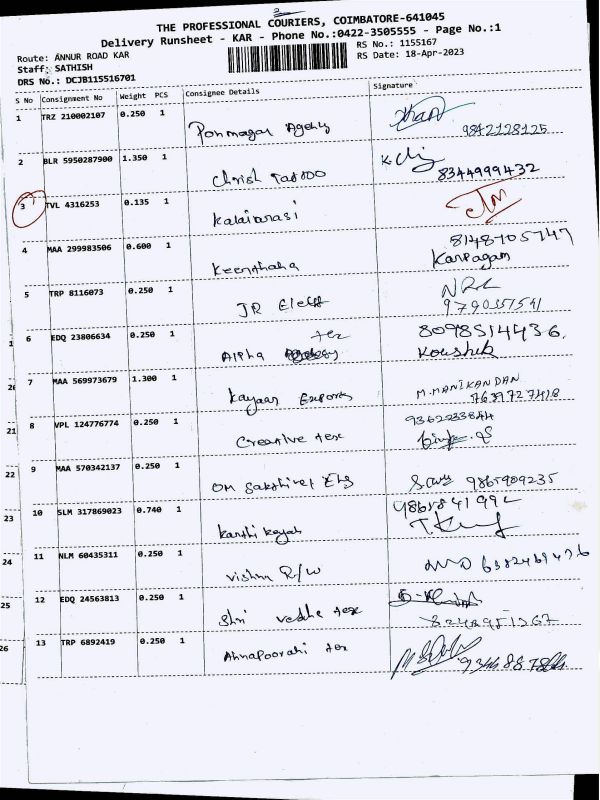 THE PROFESSIONAL COURIERS, COIMBATORE-641045
Delivery Runsheet - KAR - Phone No.:0422-3505555 - Page No.:1
Route: ANNUR ROAD KAR
RS No.: 1155167
Staff: SATHISH
RS Date: 18-Apr-2023
DRS No.: DCJB115516701
S No Consignment No Weight PCS Consignee Details Signature
1 TRZ 210002107 0.250 1
Ponmagar Agency 9842128125
2 BLR 5950287900 1.350 1
Chrish Tattoo 8344999432
3 TVL 4316253 0.135 1
Kalaiarasi
4 MAA 299983506 0.600 1 8148705747
Keerthana Karpagam
5 TRP 8116073 0.250 1
JR Elect 9790351541
6 EDQ 23806634 0.250 1 tex 8098514436.
Alpha Koushik
7 MAA 569973679 1.300 1 M.MANIKANDAN
Kayaar Exports 7639727418
8 VPL 124776774 0.250 1 9362233844
Creative tex
9 MAA 570342137 0.250 1
OM Sakthivel Eng 9865909235
10 SLM 317869023 0.740 1
Karthi Kayah
11 NLM 60435311 0.250 1
Vishnu R/W
12 EDQ 24563813 0.250 1
Shri tex 8248951267
13 TRP 6892419 0.250 1
Annapoorani tex
21
22
23
24
25
26